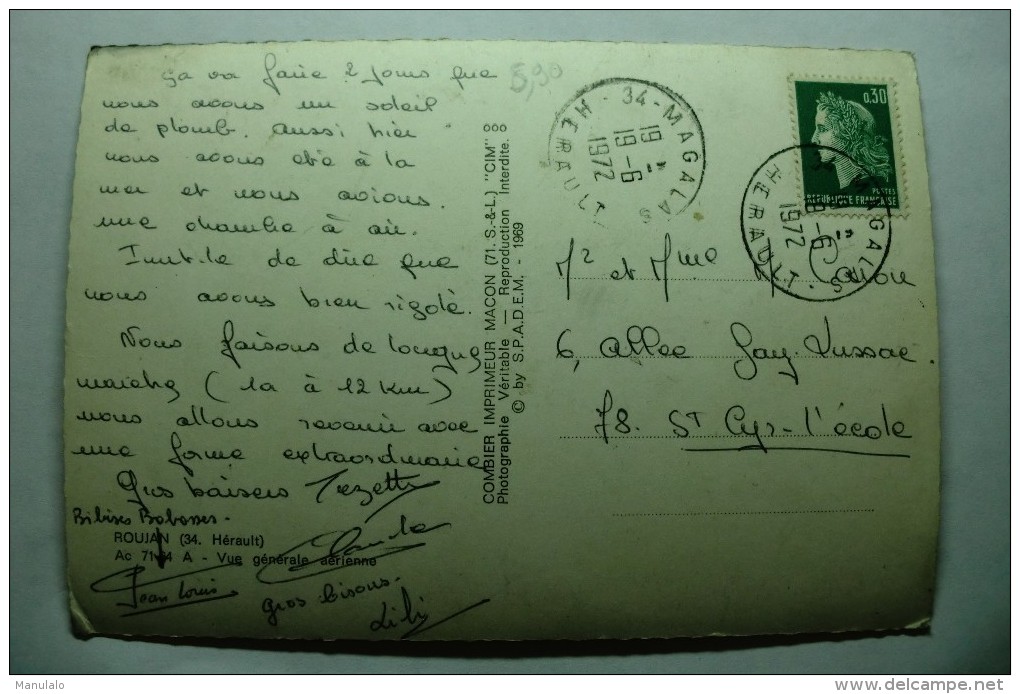 ça va faire 2 jours que
nous avons un soleil
de plomb. Aussi hier
nous avons été à la
mer et nous avions
une chambre à air.
Inutile de dire que
nous avons bien rigolé.
Nous faisons de longues
marches (10 à 12 km)
nous allons revenir avec
une forme extraordinaire
Gros baisers
Bibises Babasses.
ROUJAN (34. Hérault)
Ac 71-64 A - Vue générale aérienne
Jean Louis
gros bisous.
Lili
5,90
COMBIER IMPRIMEUR MACON (71. S.-&-L.) "CIM"
Photographie Véritable — Reproduction Interdite.
© by S.P.A.D.E.M. - 1969
34 - MAGALAS
19 H
19-6
1972
HERAULT
0,30
POSTES
REPUBLIQUE FRANÇAISE
MAGALAS
19-6
1972
HERAULT
Mr et Mme
6, allee Gay-Lussac.
78. St Cyr-l'école
www.delcampe.net
Manulalo